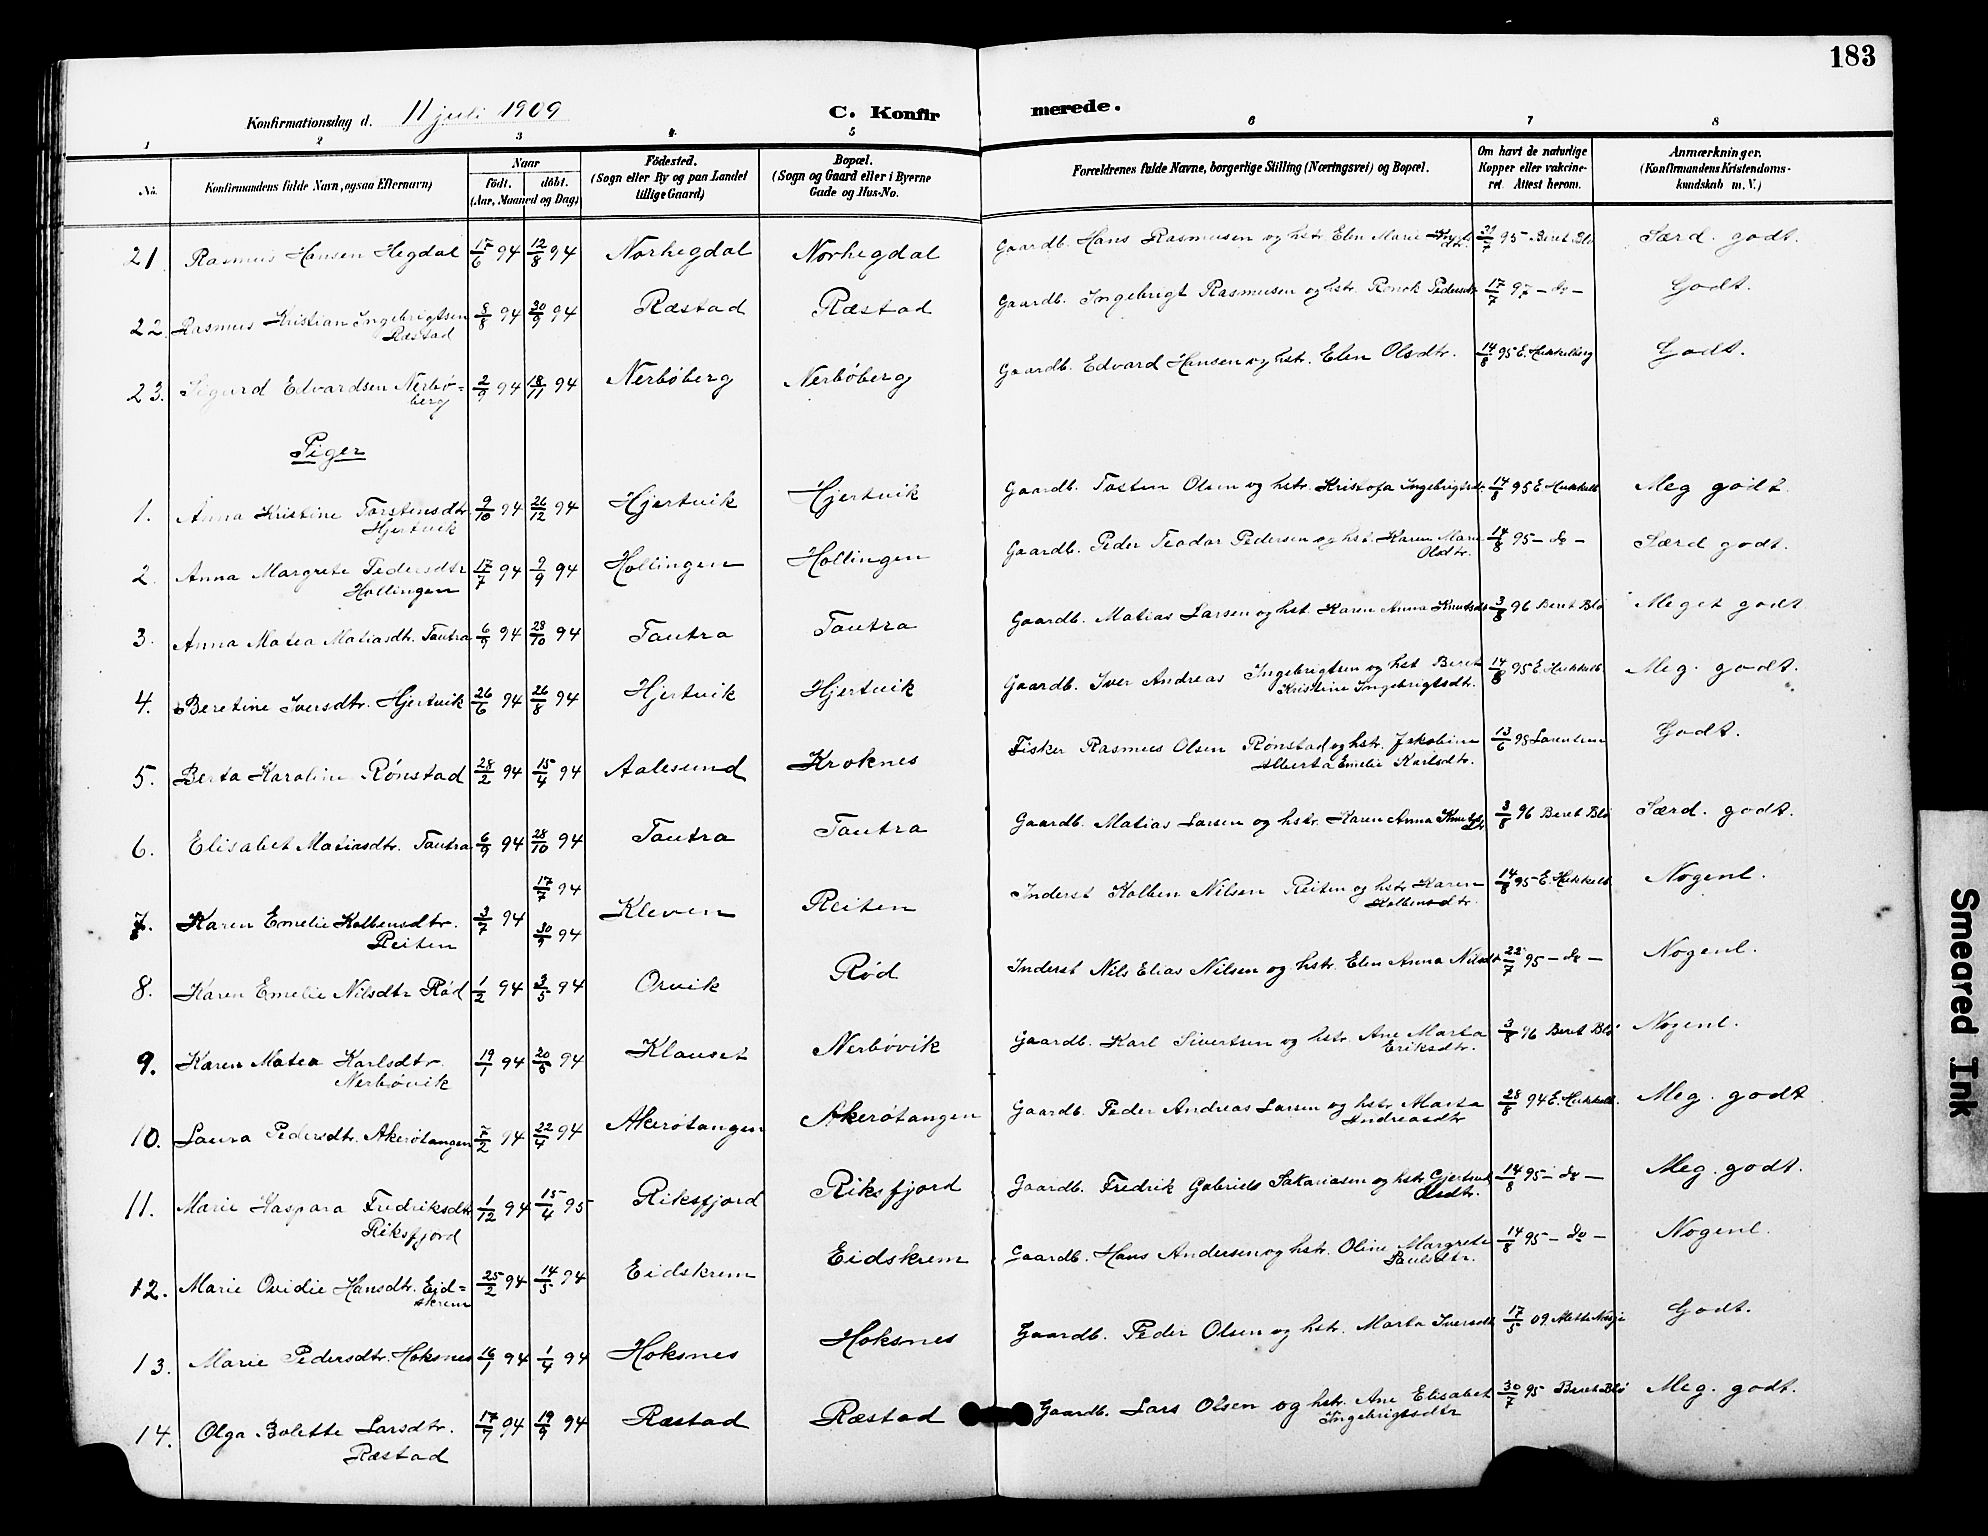 183
Konfirmationsdag d. 11 juli 1909
C. Konfirmerede.
1 2 3 4 5 6 7 8
No. Konfirmandens fulde Navn, ogsaa Efternavn) Naar født. døbt. (Aar, Maaned og Dag) Fødested. (Sogn eller By og paa Landet tillige Gaard) Bopæl. (Sogn og Gaard eller i Byerne Gade og Hus-No. Forældrenes fulde Navne, borgerlige Stilling (Næringsvei) og Bopæl. Om havt de naturlige Kopper eller vakcineret. Attest herom. Anmærkninger. (Konfirmandens Kristendomskundskab m. V.)
21. Rasmus Hansen Hegdal 17/6 94 12/8 94 Norhegdal Norhegdal Gaardb. Hans Rasmusen og hstr. Elen Marie 31/7 95 Beret Blø Særd. godt.
22. Rasmus Kristian Ingebrigtsen Ræstad 8/8 94 30/9 94 Ræstad Ræstad Gaardb. Ingebrigt Rasmusen og hstr. Pedersdtr 17/7 97 - do - Godt.
23. Sigurd Edvardsen Nerbø=berg 2/9 94 18/11 94 Nerbøberg Nerbøberg Gaardb. Edvard Hansen og hstr. Elen Olsdtr. 14/8 95 E. Hukkelberg Godt.
Piger
1. Anna Kristine Torstensdtr Hjertvik 9/10 94 26/12 94 Hjertvik Hjertvik Gaardb. Tosten Olsen og hstr. Kristofa Ingebrigtsdtr. 14/8 95 E. Hukkelb. Meg godt.
2. Anna Margrete Pedersdtr Hollingen 17/7 94 9/9 94 Hollingen Hollingen Gaardb. Peder Teodor Pedersen og hst. Karen Marie Olsdtr. 14/8 95 - do - Særd godt.
3. Anna Matea Matiasdtr. Tautra 6/9 94 28/10 94 Tautra Tautra Gaardb. Matias Larsen og hst. Karen Anna Knutsdtr 3/8 96 Beret Blø Meget godt
4. Beretine Iversdtr. Hjertvik 26/6 94 26/8 94 Hjertvik Hjertvik Gaardb. Iver Andreas Ingebrigtsen og hst Beret Kristine Ingebrigtsdtr. 14/8 95 E. Hukkelb. Meg. godt.
5. Berta Karoline Rønstad 28/2 94 15/4 94 Aalesund Kroknes Fisker Rasmus Olsen Rønstad og hstr. Jakobine Alberta Emelie Karlsdtr. 13/6 95 Godt.
6. Elisabet Matiasdtr. Tautra 6/9 94 28/10 94 Tautra Tautra Gaardb. Matias Larsen og hstr. Karen Anna Knutsdtr 3/8 96 Beret Blø Særd. godt.
7. Karen Emelie Kolbensdtr. Reiten 3/7 94 17/7 94 30/9 94 Kleven Reiten Inderst Kolben Nilsen Reiten og hstr Karen Kolbensdtr. 14/8 95 E. Hukkelb. Nogenl.
8. Karen Emelie Nilsdtr Rød 1/2 94 3/5 94 Orvik Rød Inderst Nils Elias Nilsen og hstr. Elen Anna Nilsdtr 22/7 95 - do - Nogenl.
9. Karen Matea Karlsdtr. Nerbøvik 19/1 94 94 Klauset Nerbøvik Gaardb. Karl Sivertsen og hstr Ane Marta Eriksdtr. 3/8 96 Beret Blø Nogenl.
10. Laura Pedersdtr. Akerøtangen 7/2 94 22/4 94 Akerøtangen Akerøtangen Gaardb. Peder Andreas Larsen og hstr Marta Andreasdtr 28/8 94 E. Hukkelb. Meg. godt
11. Marie Kaspara Fredriksdtr Riksfjord 1/12 94 15/4 95 Riksfjord Riksfjord Gaardb. Fredrik Gabriel Sakariasen og hstr Gjertrud Olsdtr. 14/8 95 - do - Meg. godt.
12. Marie Ovidie Hansdtr. Eid=skrem 25/2 94 14/5 94 Eidskrem Eidskrem Gaardb. Hans Andersen og hstr. Oline Margrete Paulsdtr. 14/8 95 - do - Nogenl.
13. Marie Pedersdtr. Hoksnes 16/1 94 1/4 94 Hoksnes Hoksnes Gaardb. Peder Olsen og hstr. Marta Iversdtr 17/5 09 Godt.
14. Olga Bolette Larsdtr. Ræstad 17/7 94 19/9 94 Ræstad Ræstad Gaardb. Lars Olsen og hstr. Ane Elisabet Ingebrigtsdtr 30/7 95 Beret Blø Meg. godt.
Smeared Ink